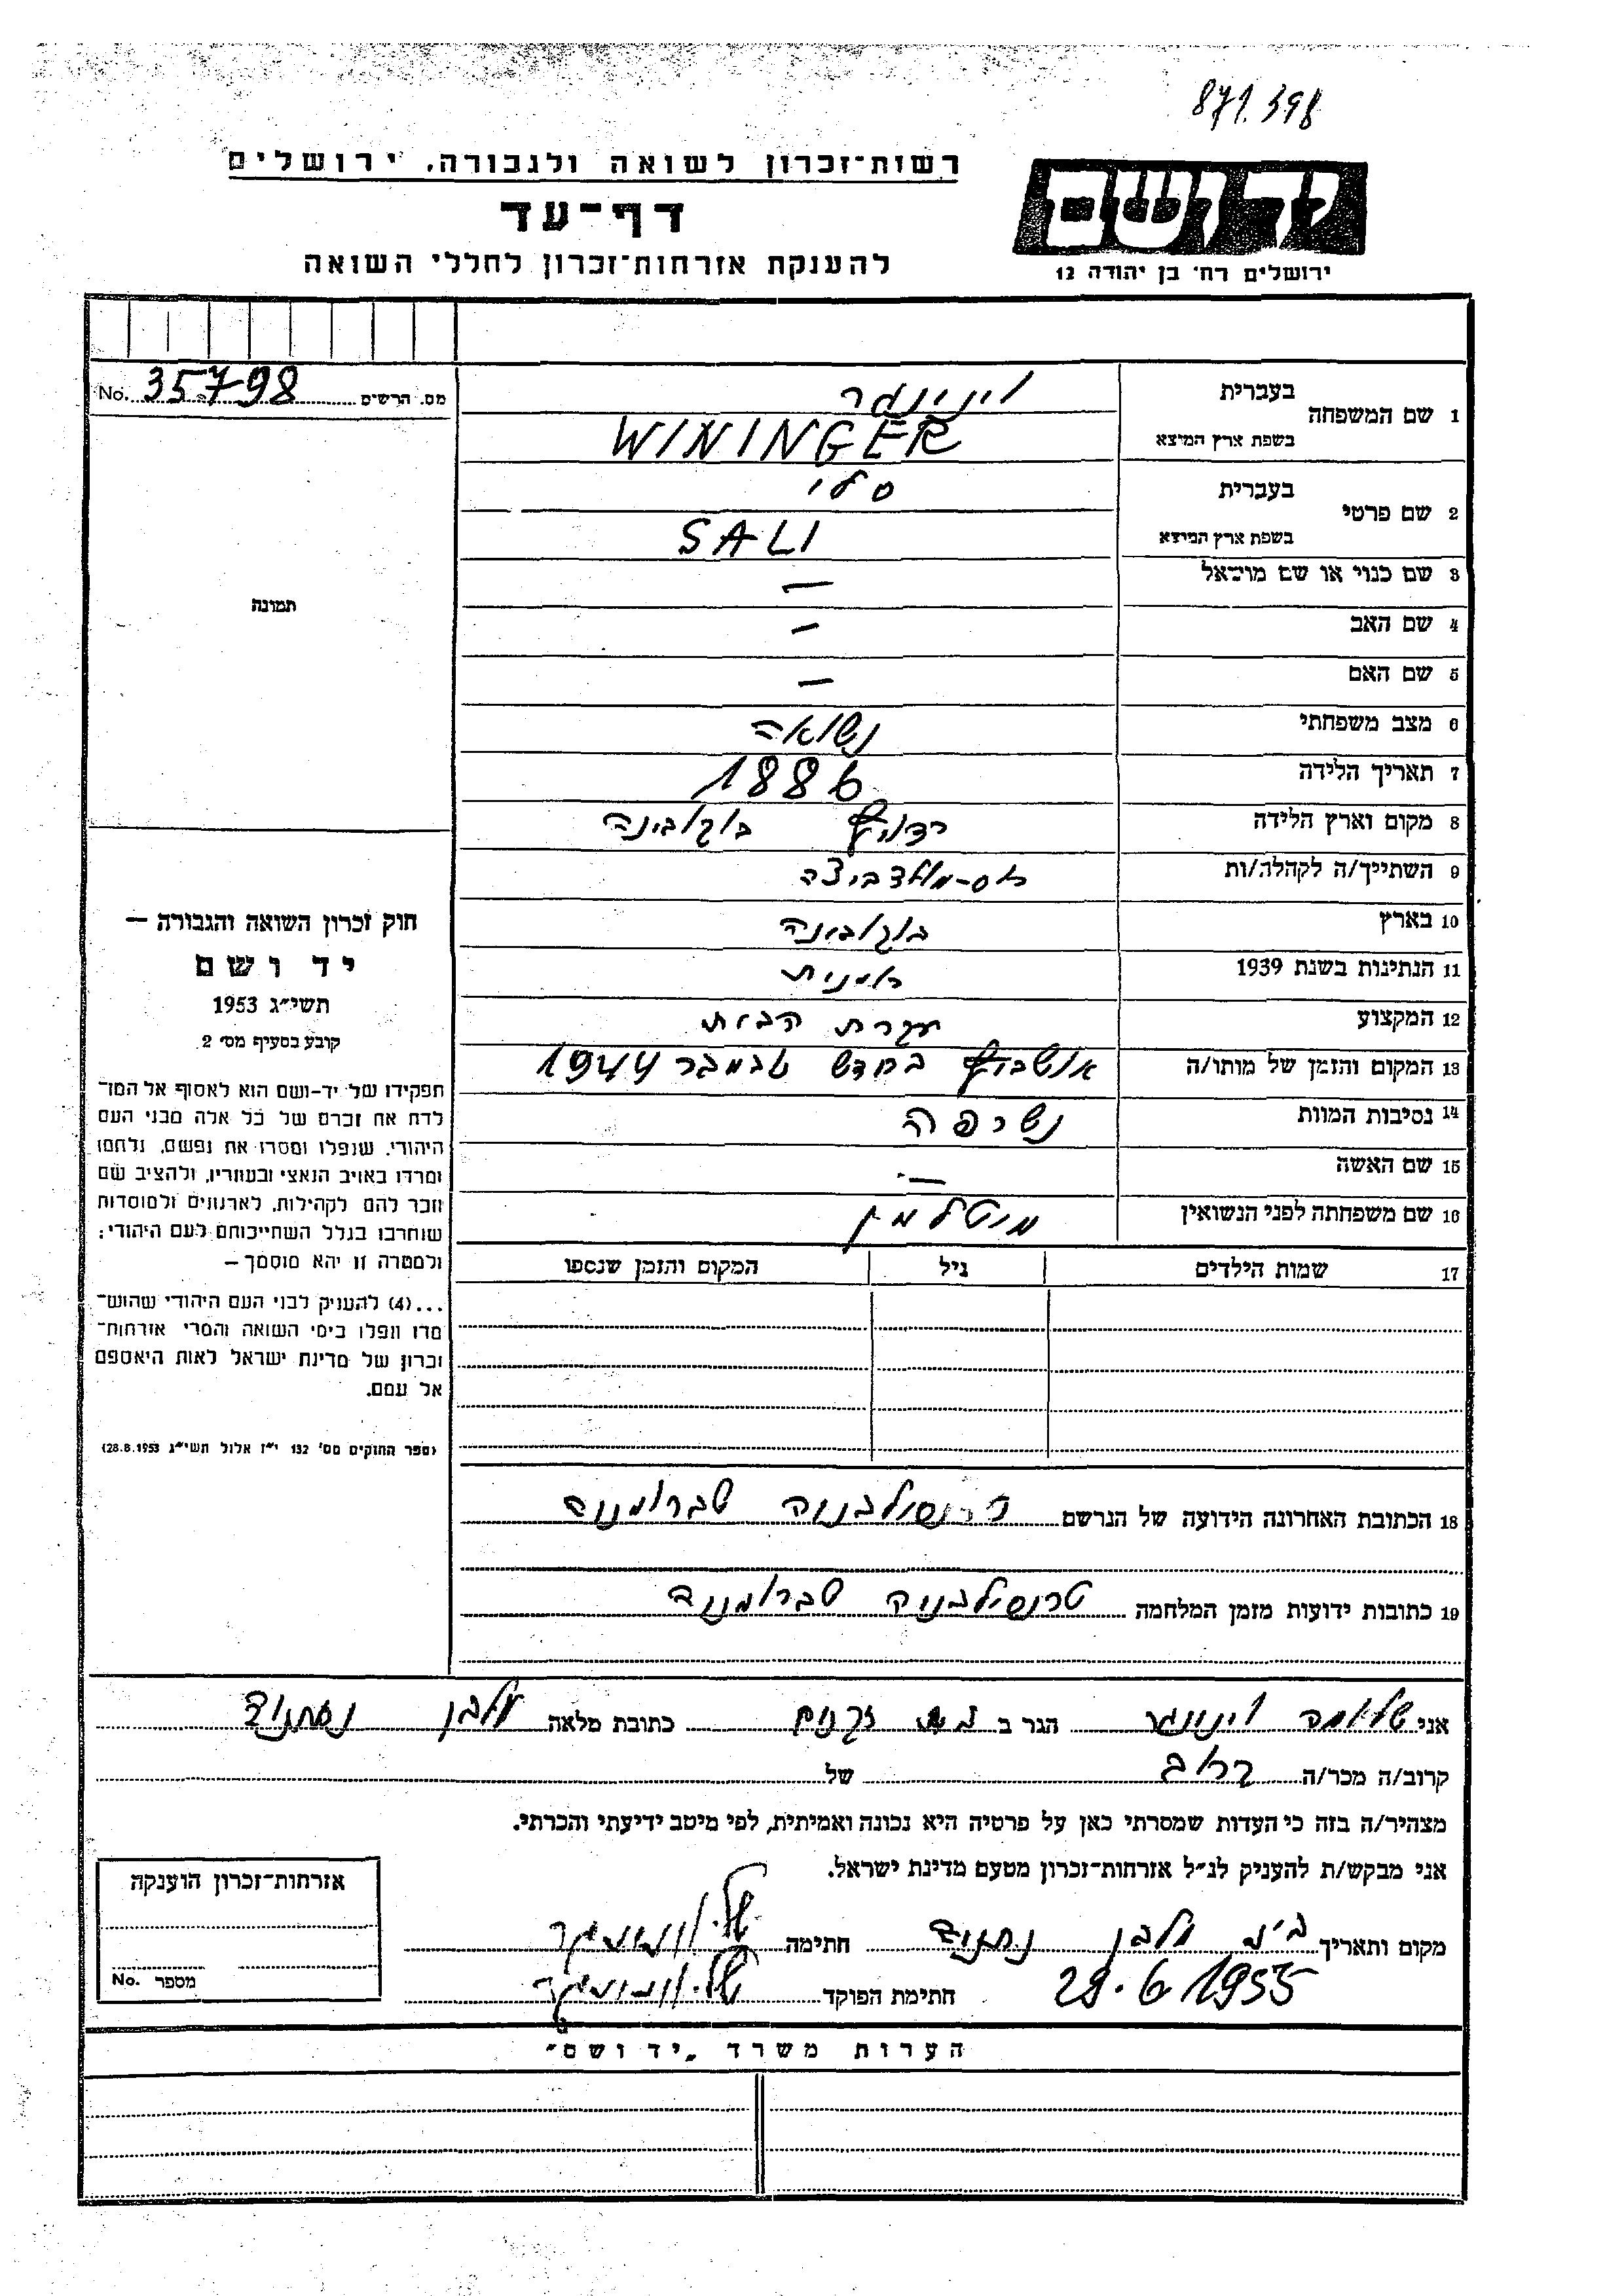 871.398
רשות־זכרון לשואה ולגבורה, ירושלים
דף־עד
להענקת אזרחות־זכרון לחללי השואה
יד ושם
ירושלים רח' בן יהודה 12
מס. הרשים 35798 No.
1 שם המשפחה בעברית וינינגר
בשפת ארץ המוצא WININGER
2 שם פרטי בעברית סלי
בשפת ארץ המוצא SALI
3 שם כנוי או שם מושאל —
4 שם האב —
5 שם האם —
6 מצב משפחתי נשואה
7 תאריך הלידה 1886
8 מקום וארץ הלידה רדויץ בוקובינה
9 השתייך/ה לקהלה/ות רוס-מולדביצה
10 בארץ בוקובינה
11 הנתינות בשנת 1939 רומנית
12 המקצוע עקרת הבית
13 המקום והזמן של מותו/ה אושביץ בחדש נובמבר 1944
14 נסיבות המוות נשרפה
15 שם האשה —
16 שם משפחתה לפני הנשואין מיטלמן
17 שמות הילדים גיל המקום והזמן שנספו
18 הכתובת האחרונה הידועה של הנרשם טרנסילבניה שברומניה
19 כתובות ידועות מזמן המלחמה טרנסילבניה שברומניה
תמונה
חוק זכרון השואה והגבורה —
יד ושם
תשי״ג 1953
קובע בסעיף מס׳ 2
תפקידו של יד-ושם הוא לאסוף אל המו־
לדת את זכרם של כל אלה מבני העם
היהודי, שנפלו ומסרו את נפשם, נלחמו
ומרדו באויב הנאצי ובעוזריו, ולהציב שם
וזכר להם לקהילות, לארגונים ולמוסדות
שנחרבו בגלל השתייכותם לעם היהודי;
ולמטרה זו יהא מוסמך —
...(4) להעניק לבני העם היהודי שהוש־
מדו ונפלו בימי השואה והמרי אזרחות־
זכרון של מדינת ישראל לאות היאספם
אל עמם.
(ספר החוקים מס׳ 132 י״ז אלול תשי״ג 28.8.1953)
אני שלומה וינינגר הגר ב בית זקנים כתובת מלאה מלבן נתניה
קרוב/ה מכר/ה קרוב של
מצהיר/ה בזה כי העדות שמסרתי כאן על פרטיה היא נכונה ואמיתית, לפי מיטב ידיעתי והכרתי.
אני מבקש/ת להעניק לנ״ל אזרחות־זכרון מטעם מדינת ישראל.
מקום ותאריך מלבן נתניה חתימה של. וינינגר
29.6 1955 חתימת הפוקד של. וינינגר
אזרחות־זכרון הוענקה
מספר No.
הערות משרד „יד ושם״